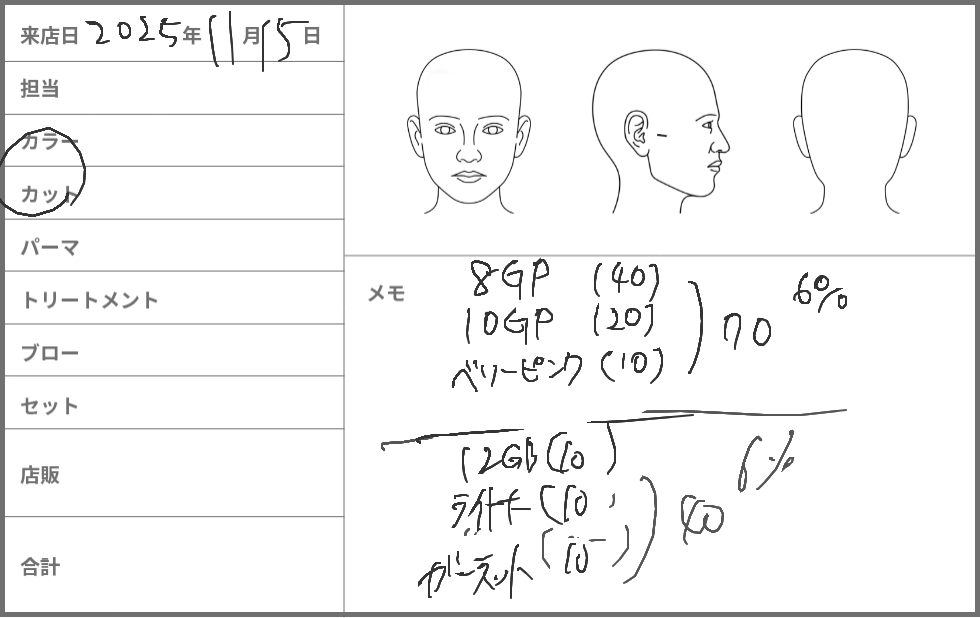 来店日 2025年11月15日
担当
カラー
カット
パーマ
トリートメント
ブロー
セット
店販
合計
メモ
8GP (40)
10GP (20)
ベリーピンク (10)
70
6%
12GB (10)
ライトナー (10)
ガーネット (10)
40
6%